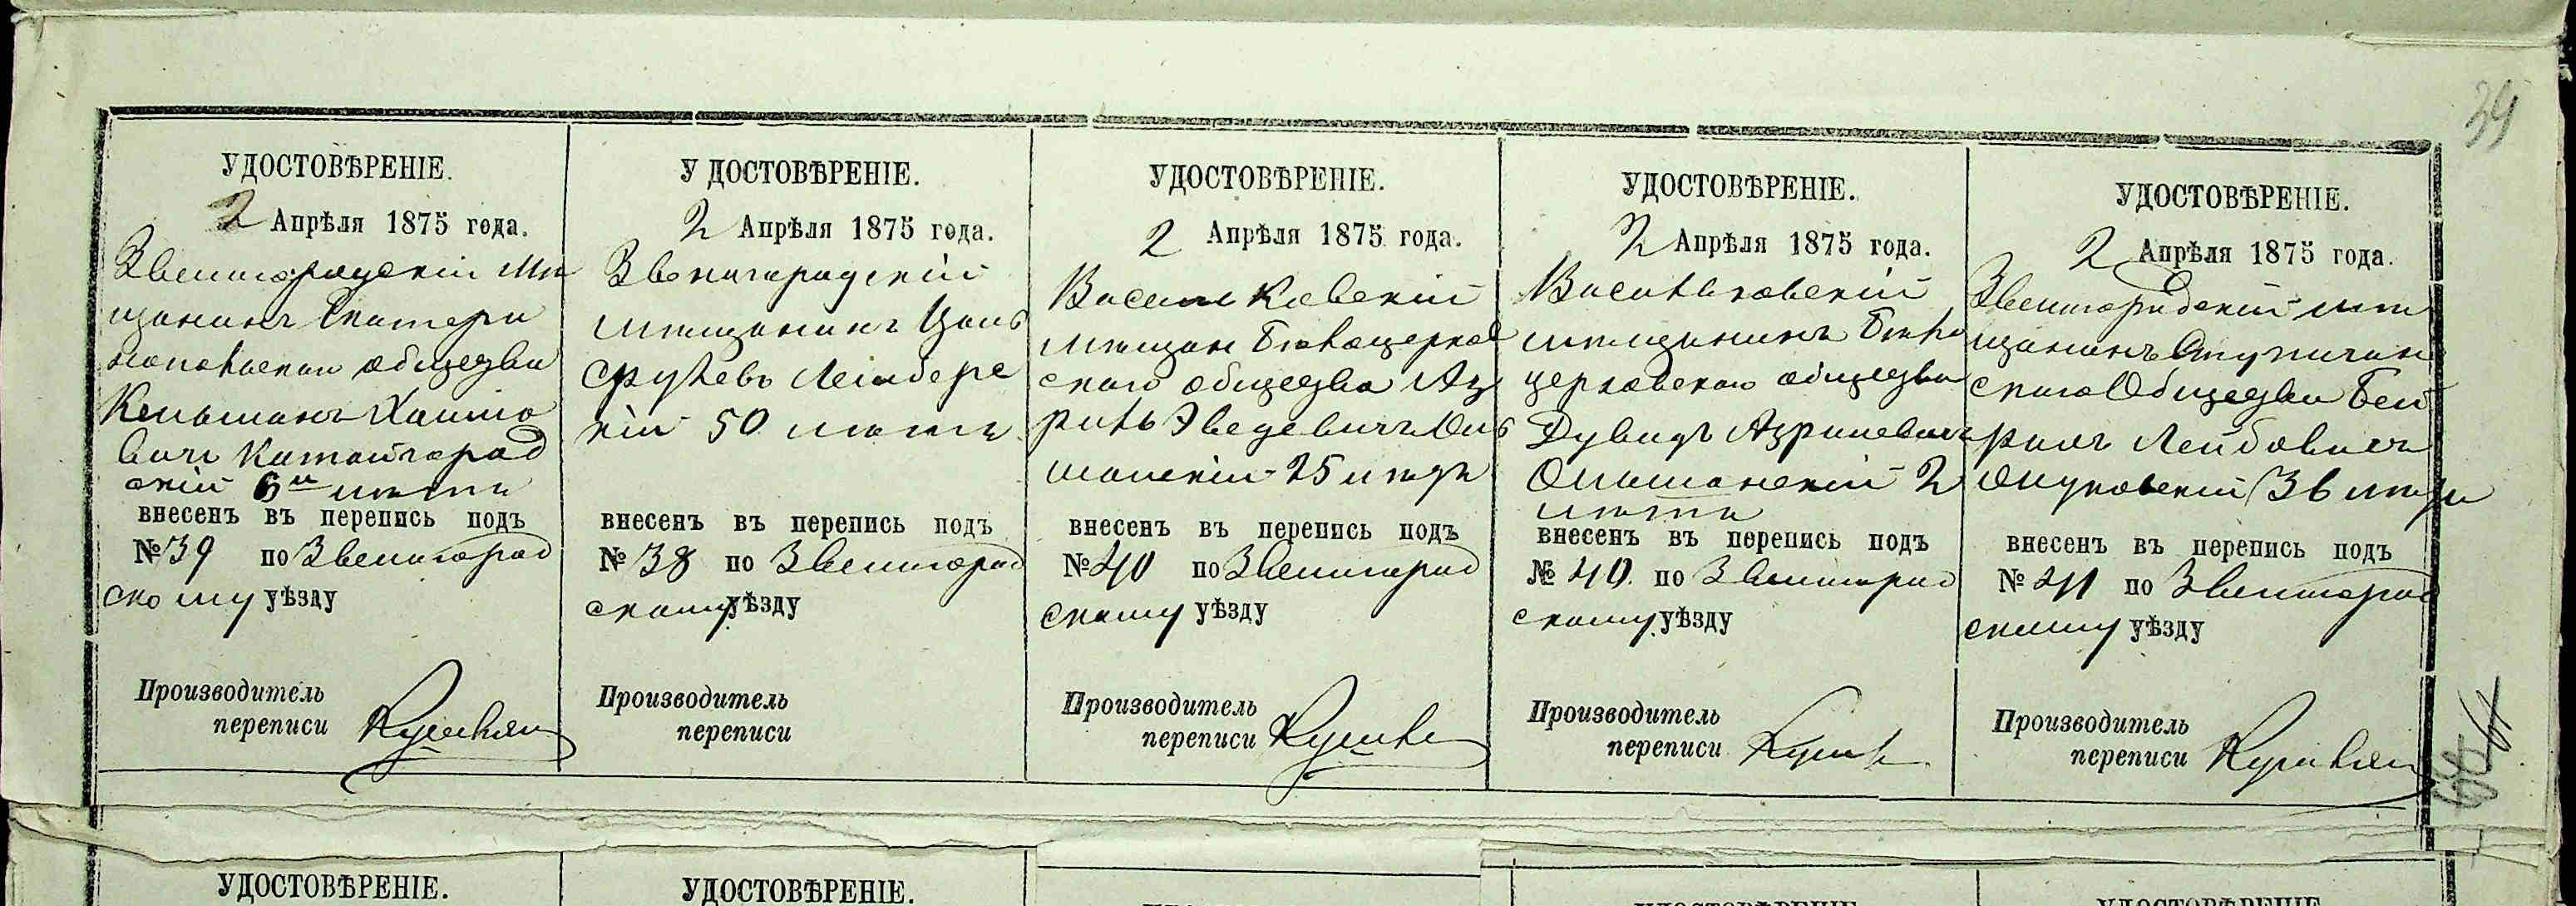 39
УДОСТОВѢРЕНІЕ.
2 Апрѣля 1875 года.
Звенигородскій мѣ
щанинъ Екатери
нопольскаго общества
Кельманъ Хаимо
вичъ Китайгород
скій 6и лѣтъ
внесенъ въ перепись подъ
№ 39 по Звенигород
скому уѣзду
Производитель
переписи
У ДОСТОВѢРЕНІЕ.
2 Апрѣля 1875 года.
Звенигородскій
мѣщанинъ
кій 50 лѣтъ
внесенъ въ перепись подъ
№ 38 по Звенигород
скому уѣзду
Производитель
переписи
УДОСТОВѢРЕНІЕ.
2 Апрѣля 1875 года.
Васильковскій
мѣщан Бѣлоцерков
скаго общества Аз
риль Оль
шанскій 25 лѣтъ
внесенъ въ перепись подъ
№ 40 по Звенигород
скому уѣзду
Производитель
переписи
УДОСТОВѢРЕНІЕ.
2 Апрѣля 1875 года.
Васильковскій
мѣщанинъ Бѣло
церковскаго общества
Дувидъ Азрилевичъ
Ольшанскій 2
лѣтъ
внесенъ въ перепись подъ
№ 40. по Звенигород
скому уѣзду
Производитель
переписи
УДОСТОВѢРЕНІЕ.
2 Апрѣля 1875 года.
Звенигородскій мѣ
щанинъ
скаго Общества
Лейбовичъ
36 лѣтъ
внесенъ въ перепись подъ
№ 41 по Звенигород
скому уѣзду
Производитель
переписи
УДОСТОВѢРЕНІЕ.
УДОСТОВѢРЕНІЕ.